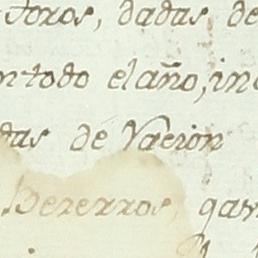 toros, dadas de
todo el año, in
das de Vacion
Bezerros, gan